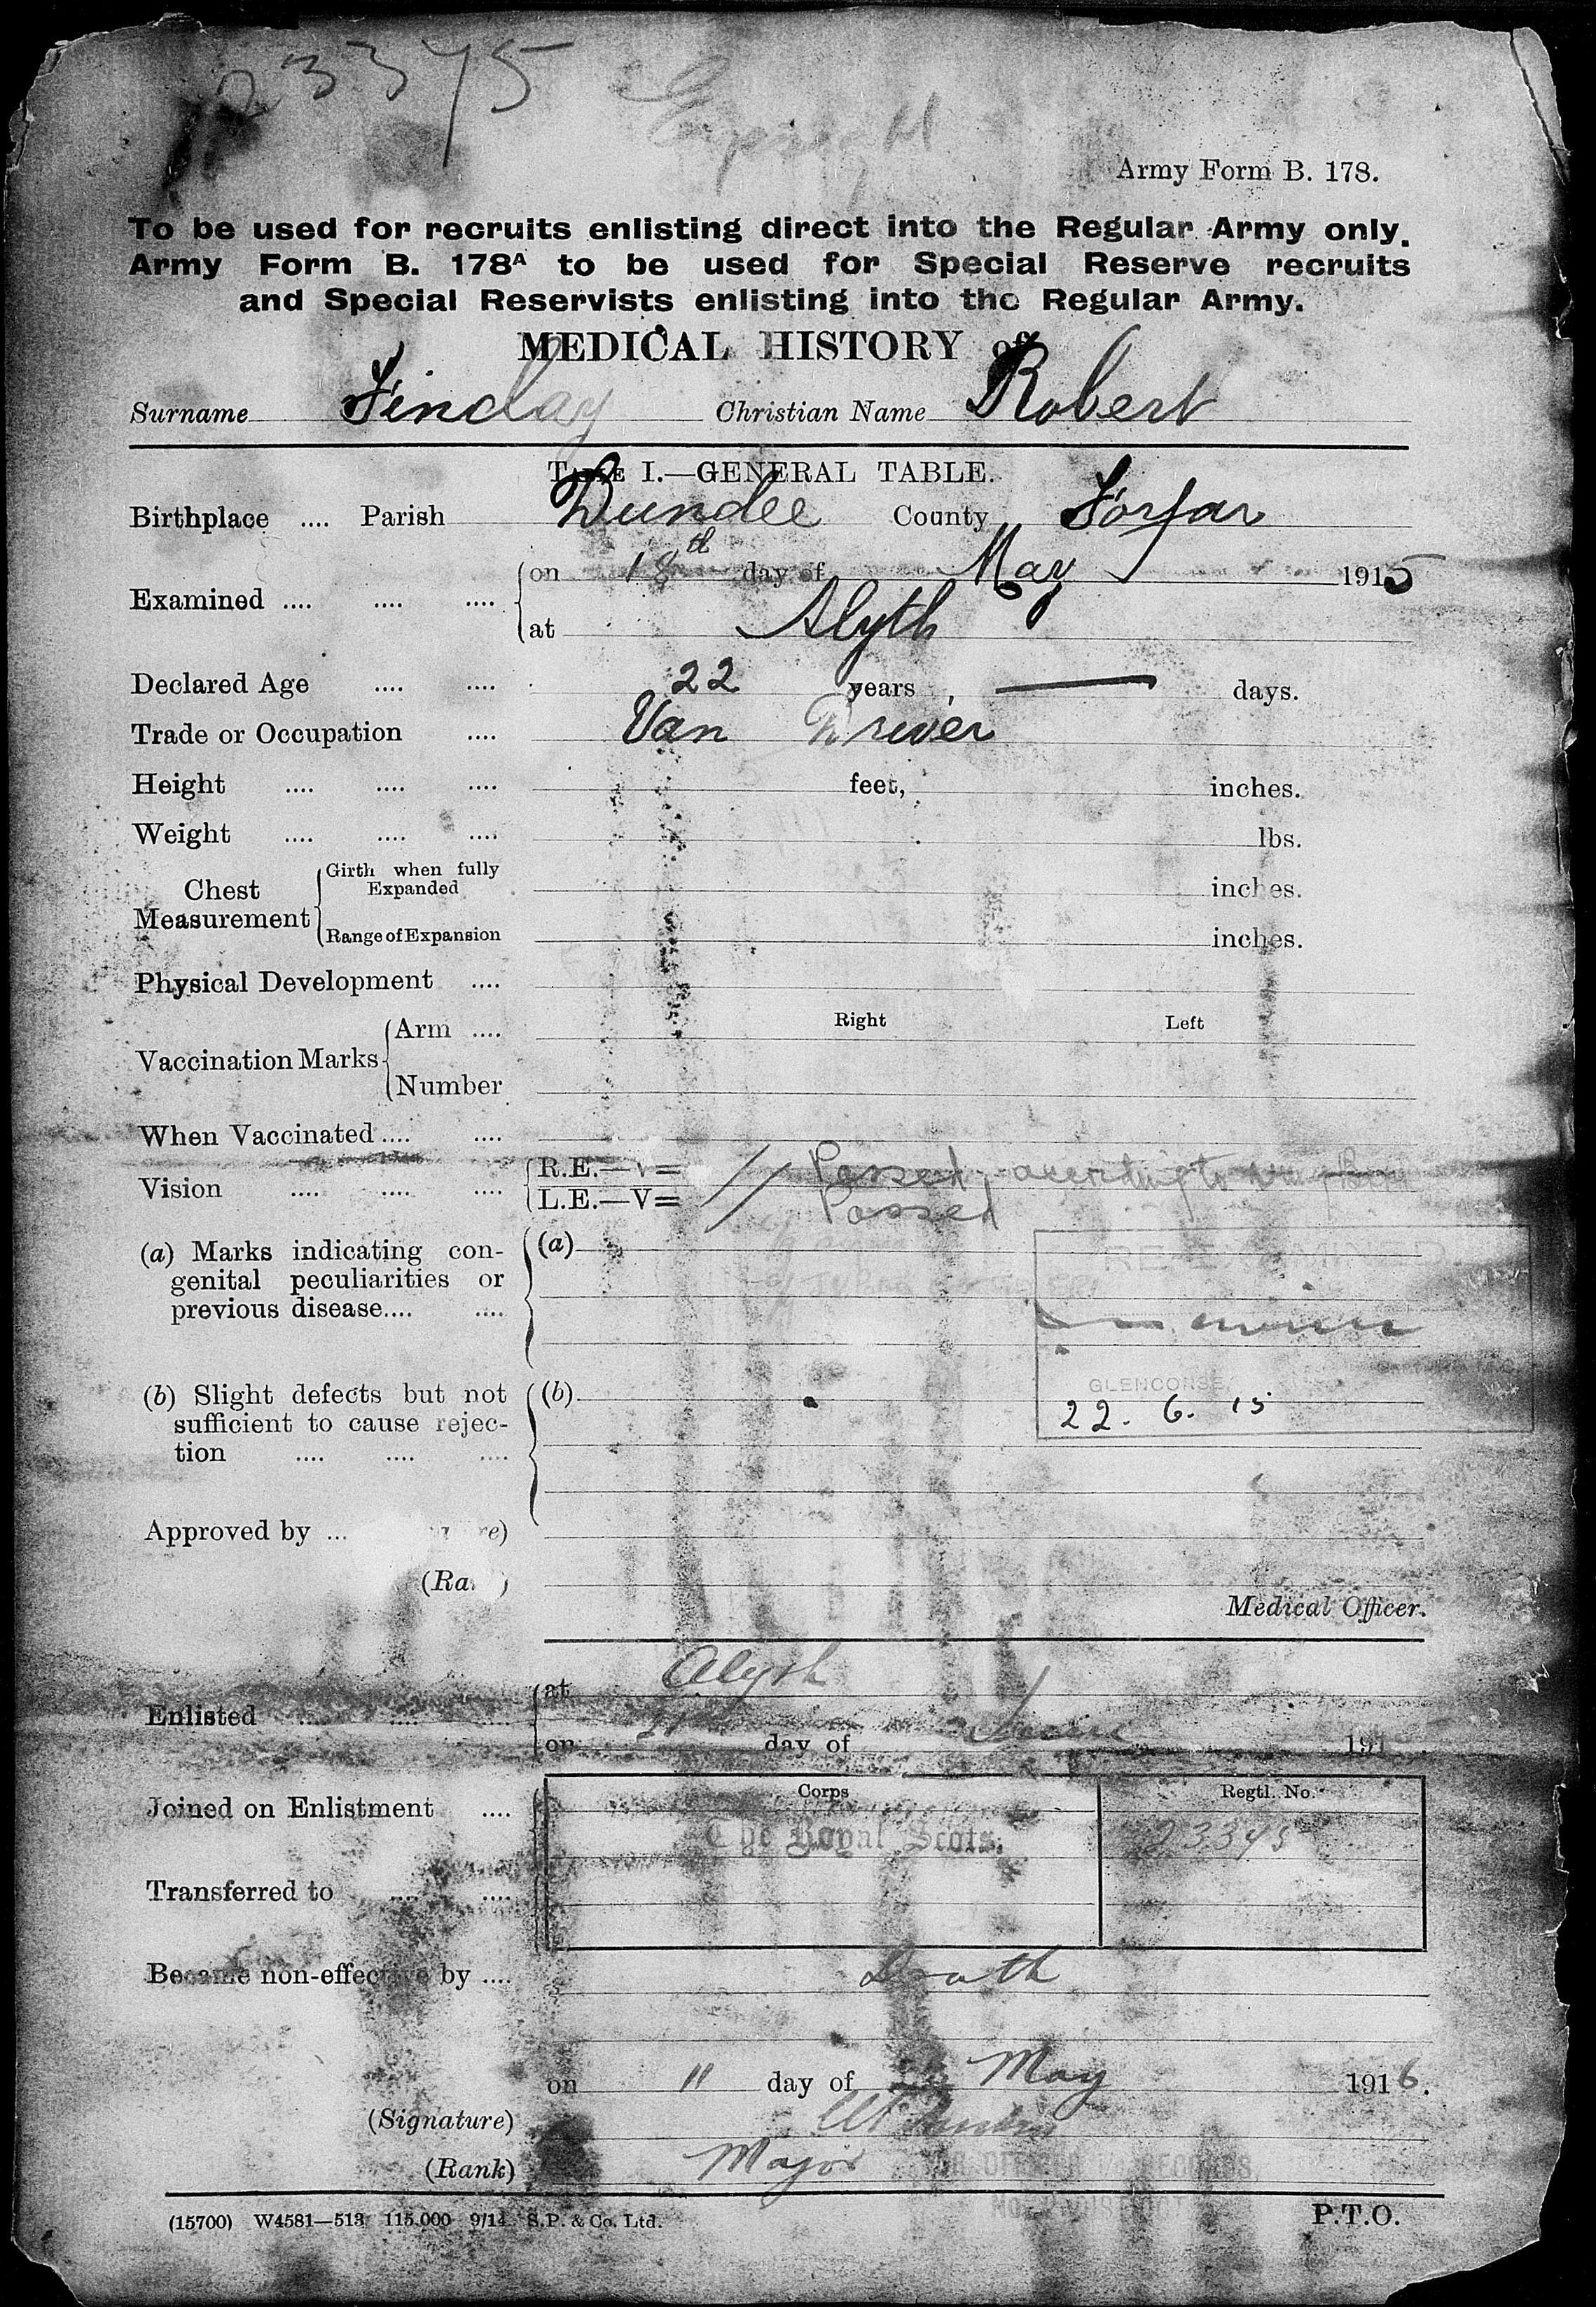 23375
Army Form B. 178.
To be used for recruits enlisting direct into the Regular Army only.
Army Form B. 178A to be used for Special Reserve recruits
and Special Reservists enlisting into the Regular Army.
MEDICAL HISTORY of
Surname Findlay Christian Name Robert
TABLE I.—GENERAL TABLE.
Birthplace .... Parish Dundee County Forfar
Examined .... .... .... on 18th day of May 1915
at Alyth
Declared Age .... .... 22 years, — days.
Trade or Occupation .... Van Driver
Height .... .... .... feet, inches.
Weight .... .... .... lbs.
Chest Measurement Girth when fully Expanded inches.
Range of Expansion inches.
Physical Development ....
Right Left
Vaccination Marks Arm ....
Number
When Vaccinated .... ....
Vision .... .... .... R.E.—V= Passed, according to
L.E.—V= Passed
(a) Marks indicating con- (a)
genital peculiarities or
previous disease.... ....
GLENCORSE,
(b) Slight defects but not (b)
22. 6. 15
sufficient to cause rejec-
tion .... .... ....
Approved by ...
Medical Officer.
Enlisted .... .... .... at Alyth
on day of June 191
Corps Regtl. No.
Joined on Enlistment .... The Royal Scots. 23345
Transferred to .... ....
Became non-effective by .... Death
on 11 day of May 1916.
(Signature)
(Rank) Major
FOR OFFICER i/c RECORDS,
(15700) W4581—513 115,000 9/14 S.P. & Co. Ltd. P.T.O.